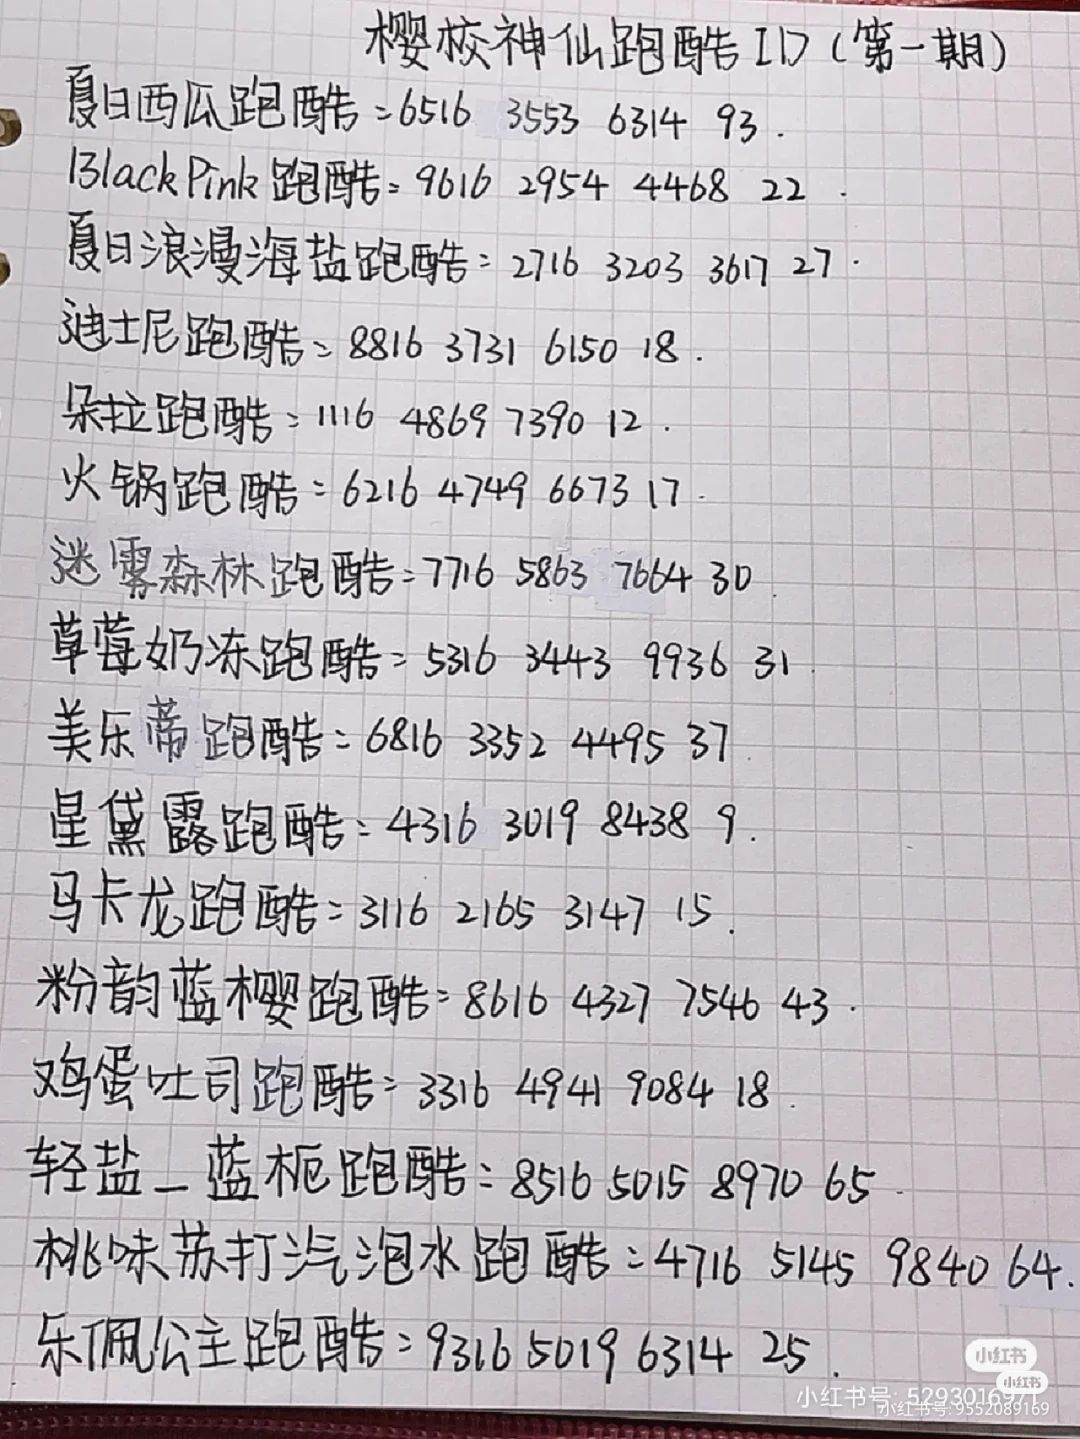 樱校神仙跑酷ID(第一期)
夏日西瓜跑酷=6516 3553 6314 93.
BlackPink跑酷=9616 2954 4468 22.
夏日浪漫海盐跑酷=2716 3203 3617 27.
迪士尼跑酷=8816 3731 6150 18.
朵拉跑酷=1116 4869 7390 12.
火锅跑酷=6216 4749 6673 17.
迷雾森林跑酷=7716 5863 7664 30.
草莓奶冻跑酷=5316 3443 9936 31.
美乐蒂跑酷=6816 3352 4495 37.
星黛露跑酷=4316 3019 8438 9.
马卡龙跑酷=3116 2165 3147 15.
粉韵蓝樱跑酷=8616 4327 7546 43.
鸡蛋吐司跑酷=3316 4941 9084 18.
轻盐_蓝栀跑酷=8516 5015 8970 65.
桃味苏打汽泡水跑酷=4716 5145 9840 64.
乐佩公主跑酷=9316 5019 6314 25.
小红书
小红书
小红书号:5293016971
小红书号:9552089169